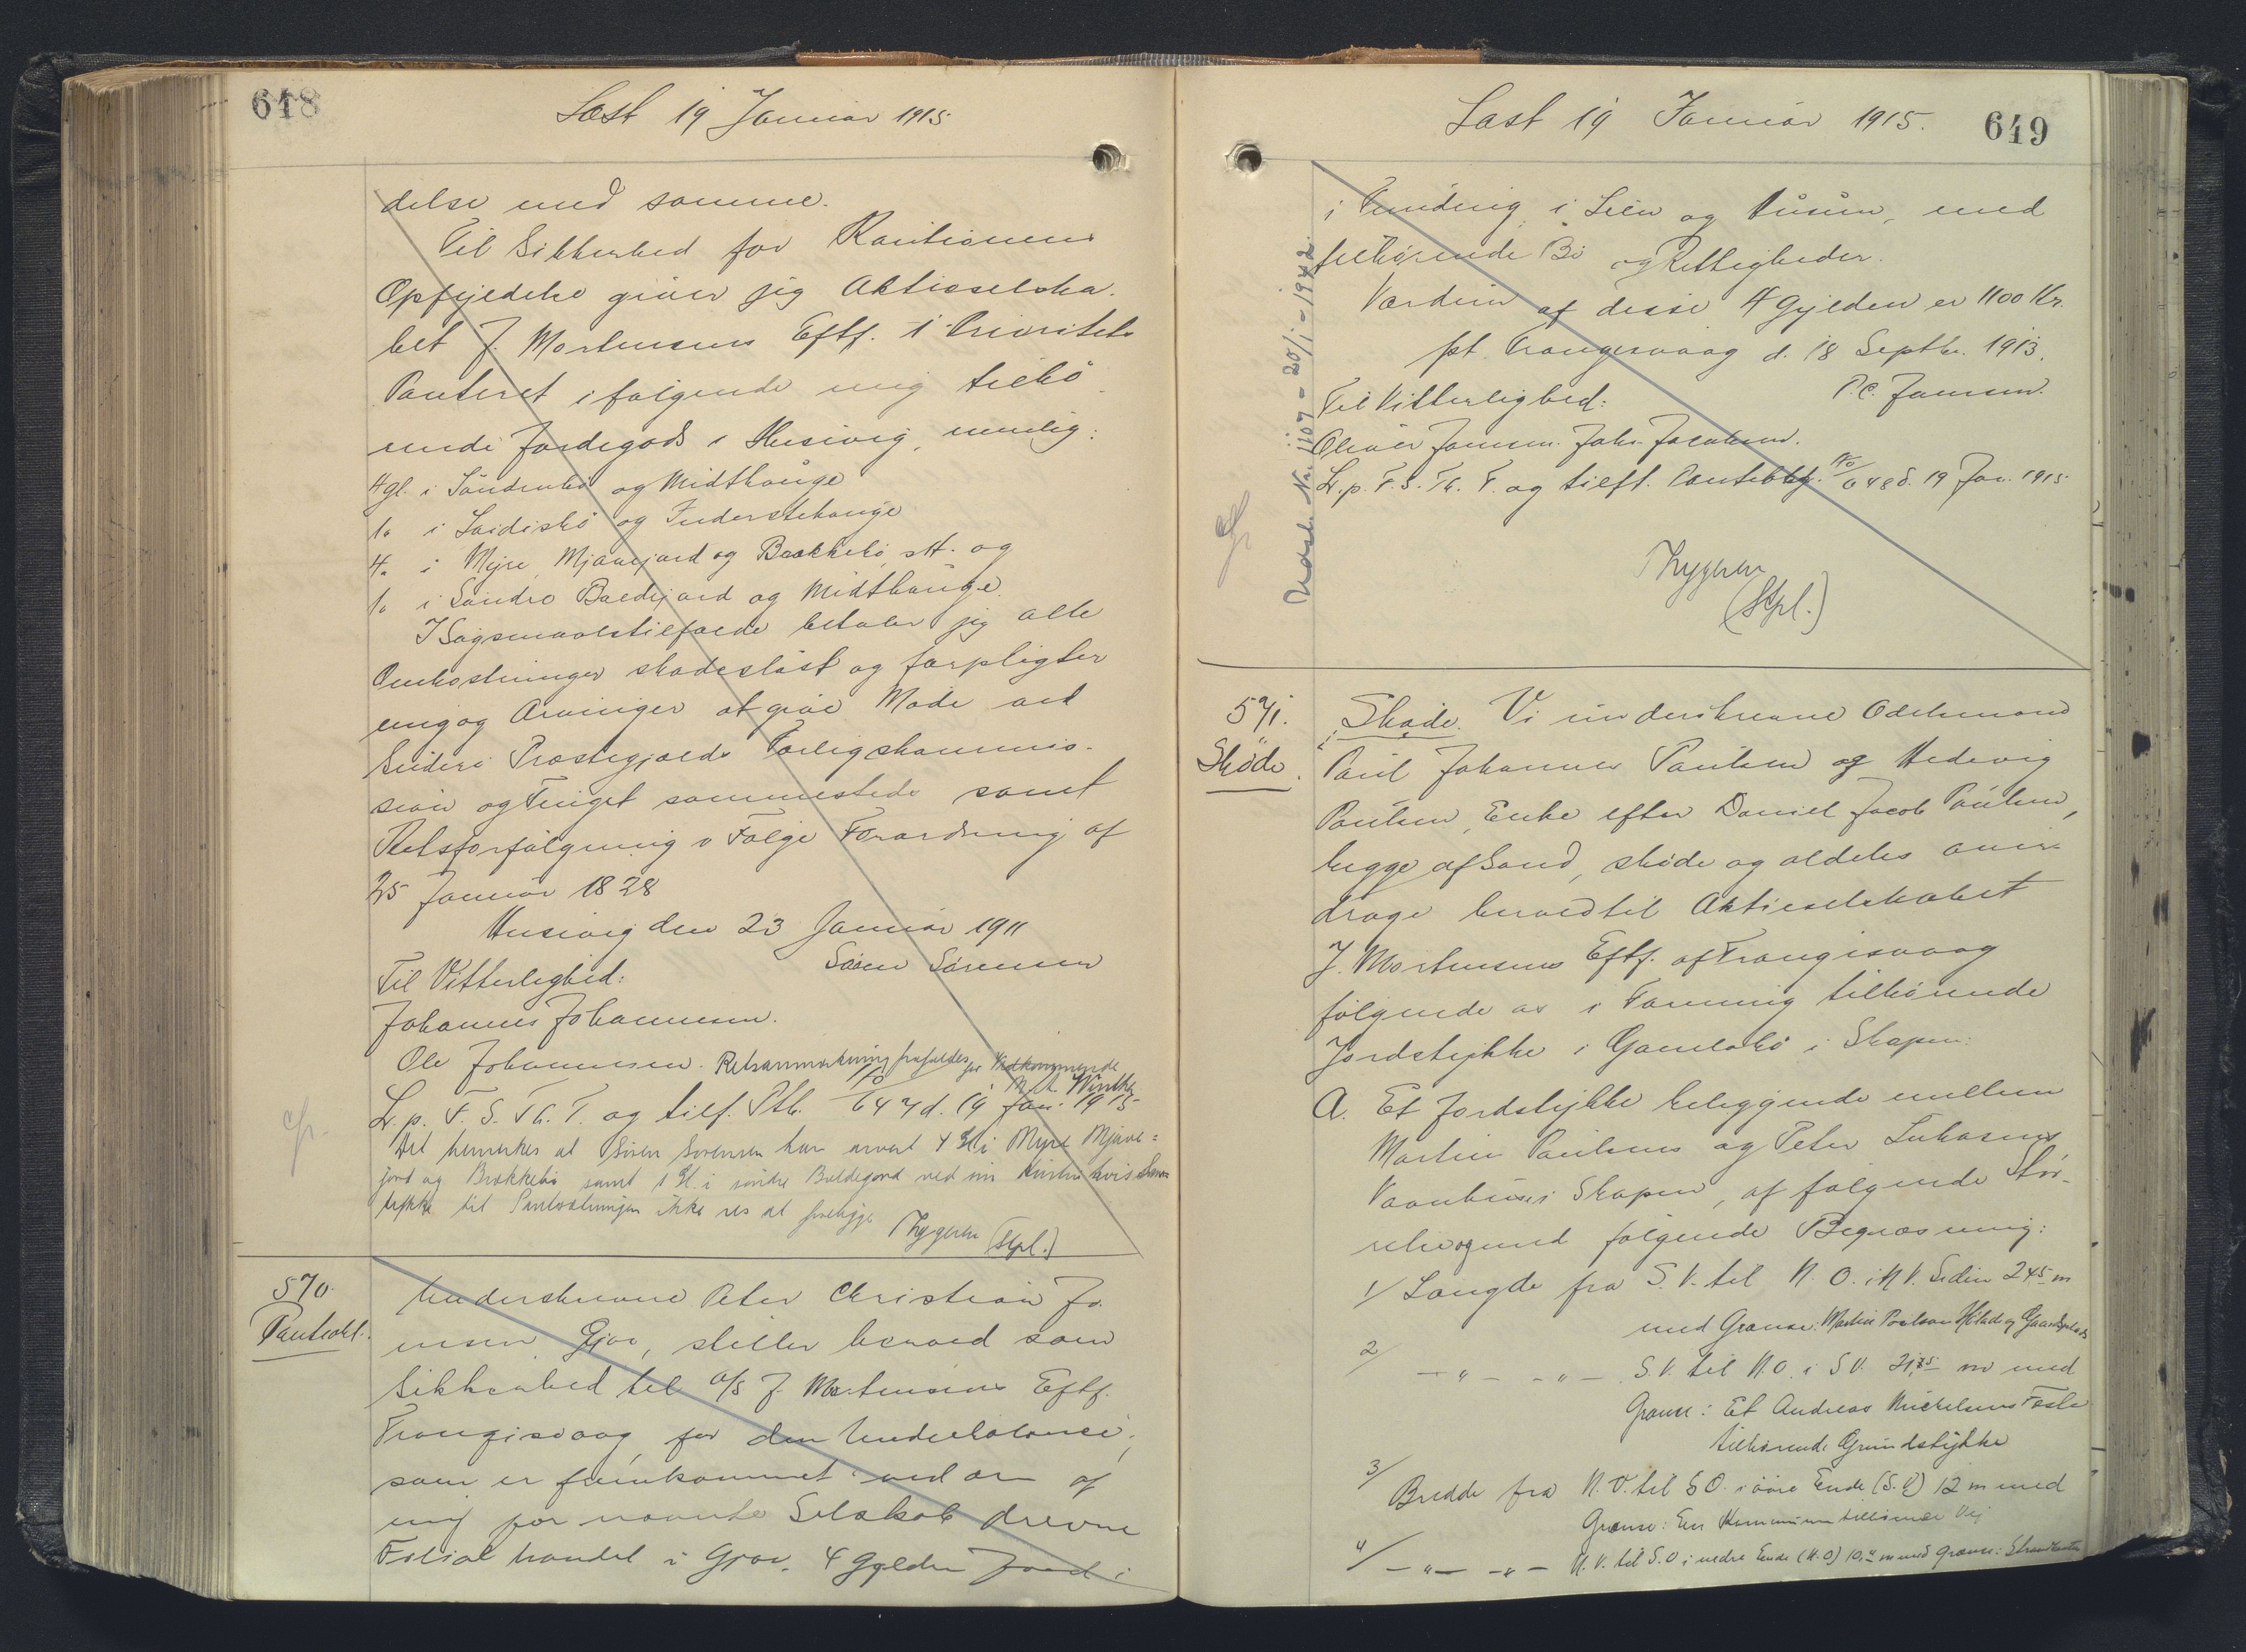 618
Læst 19 Januar 1915
delse med samme.
Til Sikkerhed for Kautionens
Opfyldelse giver jeg Aktieselska-
bet J. Mortensens Eftf. 1 Prioritets
Panteret i følgende mig tilhø-
rende Jordegods i Husivig, nemlig:
4 gl. i Søndrebø og Midthauge
1 " i Skidisbø og Inderstehauge
4 " i Myre, Mjavejord og Brekkebø, st. og
1 " i Søndre Boldejord og Midthauge.
I Søgsmaalstilfælde betaler jeg alle
Omkostninger skadesløst og forpligter
mig og Arvinger at give Møde ved
Suderø Præstegjælds Forligskommis-
sion og Tinget sammesteds samt
Retsforfølgning i Følge Forordning af
25 Januar 1828
Husivig den 23 Januar 1911
Til Vitterlighed: Søren Sørensen
Johannes Johannesen.
Ole Johannesen. Retsanmærkning frafaldes for Vedkommende
M. A. Winther
L. p. F. S. Th. T. og tilf. Ptb. No/647 d. 19 Jan. 1915
Det bemærkes at Søren Sørensen har arvet 4 Gl. i Myre Mjave=
jord og Brekkebø samt 1 Gl. i søndre Boldejord ved sin Hustru hvis Sam-
tykke til Pantsætningen ikke ses at foreligge
Thygesen (Stpl.)
cfr.
570.
Panteobl.
Underskrevne Peter Christian Jo-
ensen, Gjov, stiller herved som
Sikkerhed til A/S J. Mortensens Eftf.
Trangisvaag, for den Underbalance,
som er fremkommet ved en af
mig for nævnte Selskab drevne
Filial handel i Gjov. 4 Gylden Jord i
Læst 19 Januar 1915. 649
i Funding i Lien og Husum, med
tilhørende Bø og Rettigheder.
Værdien af disse 4 Gylden er 1100 Kr.
pt. Trangisvaag d. 18 Septbr. 1913.
Til Vitterlighed: P.C. Joensen.
Oliver Joensen. Johs. Jacobsen.
L. p. F. S. Th. T. og tilft. Pantebbg. No/648 d. 19 Jan. 1915.
Thygesen
(Stpl.)
Udsl. Nr. 1109 - 20/1 - 1942.
cfr
571.
Skøde.
Skøde. Vi underskrevne Odelsmand
Poul Johannes Poulsen og Hedevig
Poulsen, Enke efter Daniel Jacob Poulsen,
begge af Sand, skøde og aldeles over-
drage herved til Aktieselskabet
J. Mortensens Eftf. af Trangisvaag
følgende os i Forening tilhørende
Jordstykke i Gamlebø i Skopen:
A. Et Jordstykke beliggende mellem
Martin Poulsens og Peter Lukasens
Vaanhuse i Skopen, af følgende Stør-
relse og med følgende Begrænsning:
1/ Længde fra S.V. til N.O. i N.V. Siden 24.5 m
med Grænse: Martin Poulsens Hjelad og Gaardsplads
2/ — " — — " — S.V. til N.O. i S.V. 21,85 m med
Grænse: Et Andreas Mickelsens Fæste
tilhørende Grundstykke
3/ Bredde fra N.V. til S.O. i øvre Ende (S.V) 12 m med
Grænse: En Kommunen tilhørende Vej
4/ — " — — " — N.V. til S.O i nedre Ende (N.O) 10," m med Grænse: Strandkanten